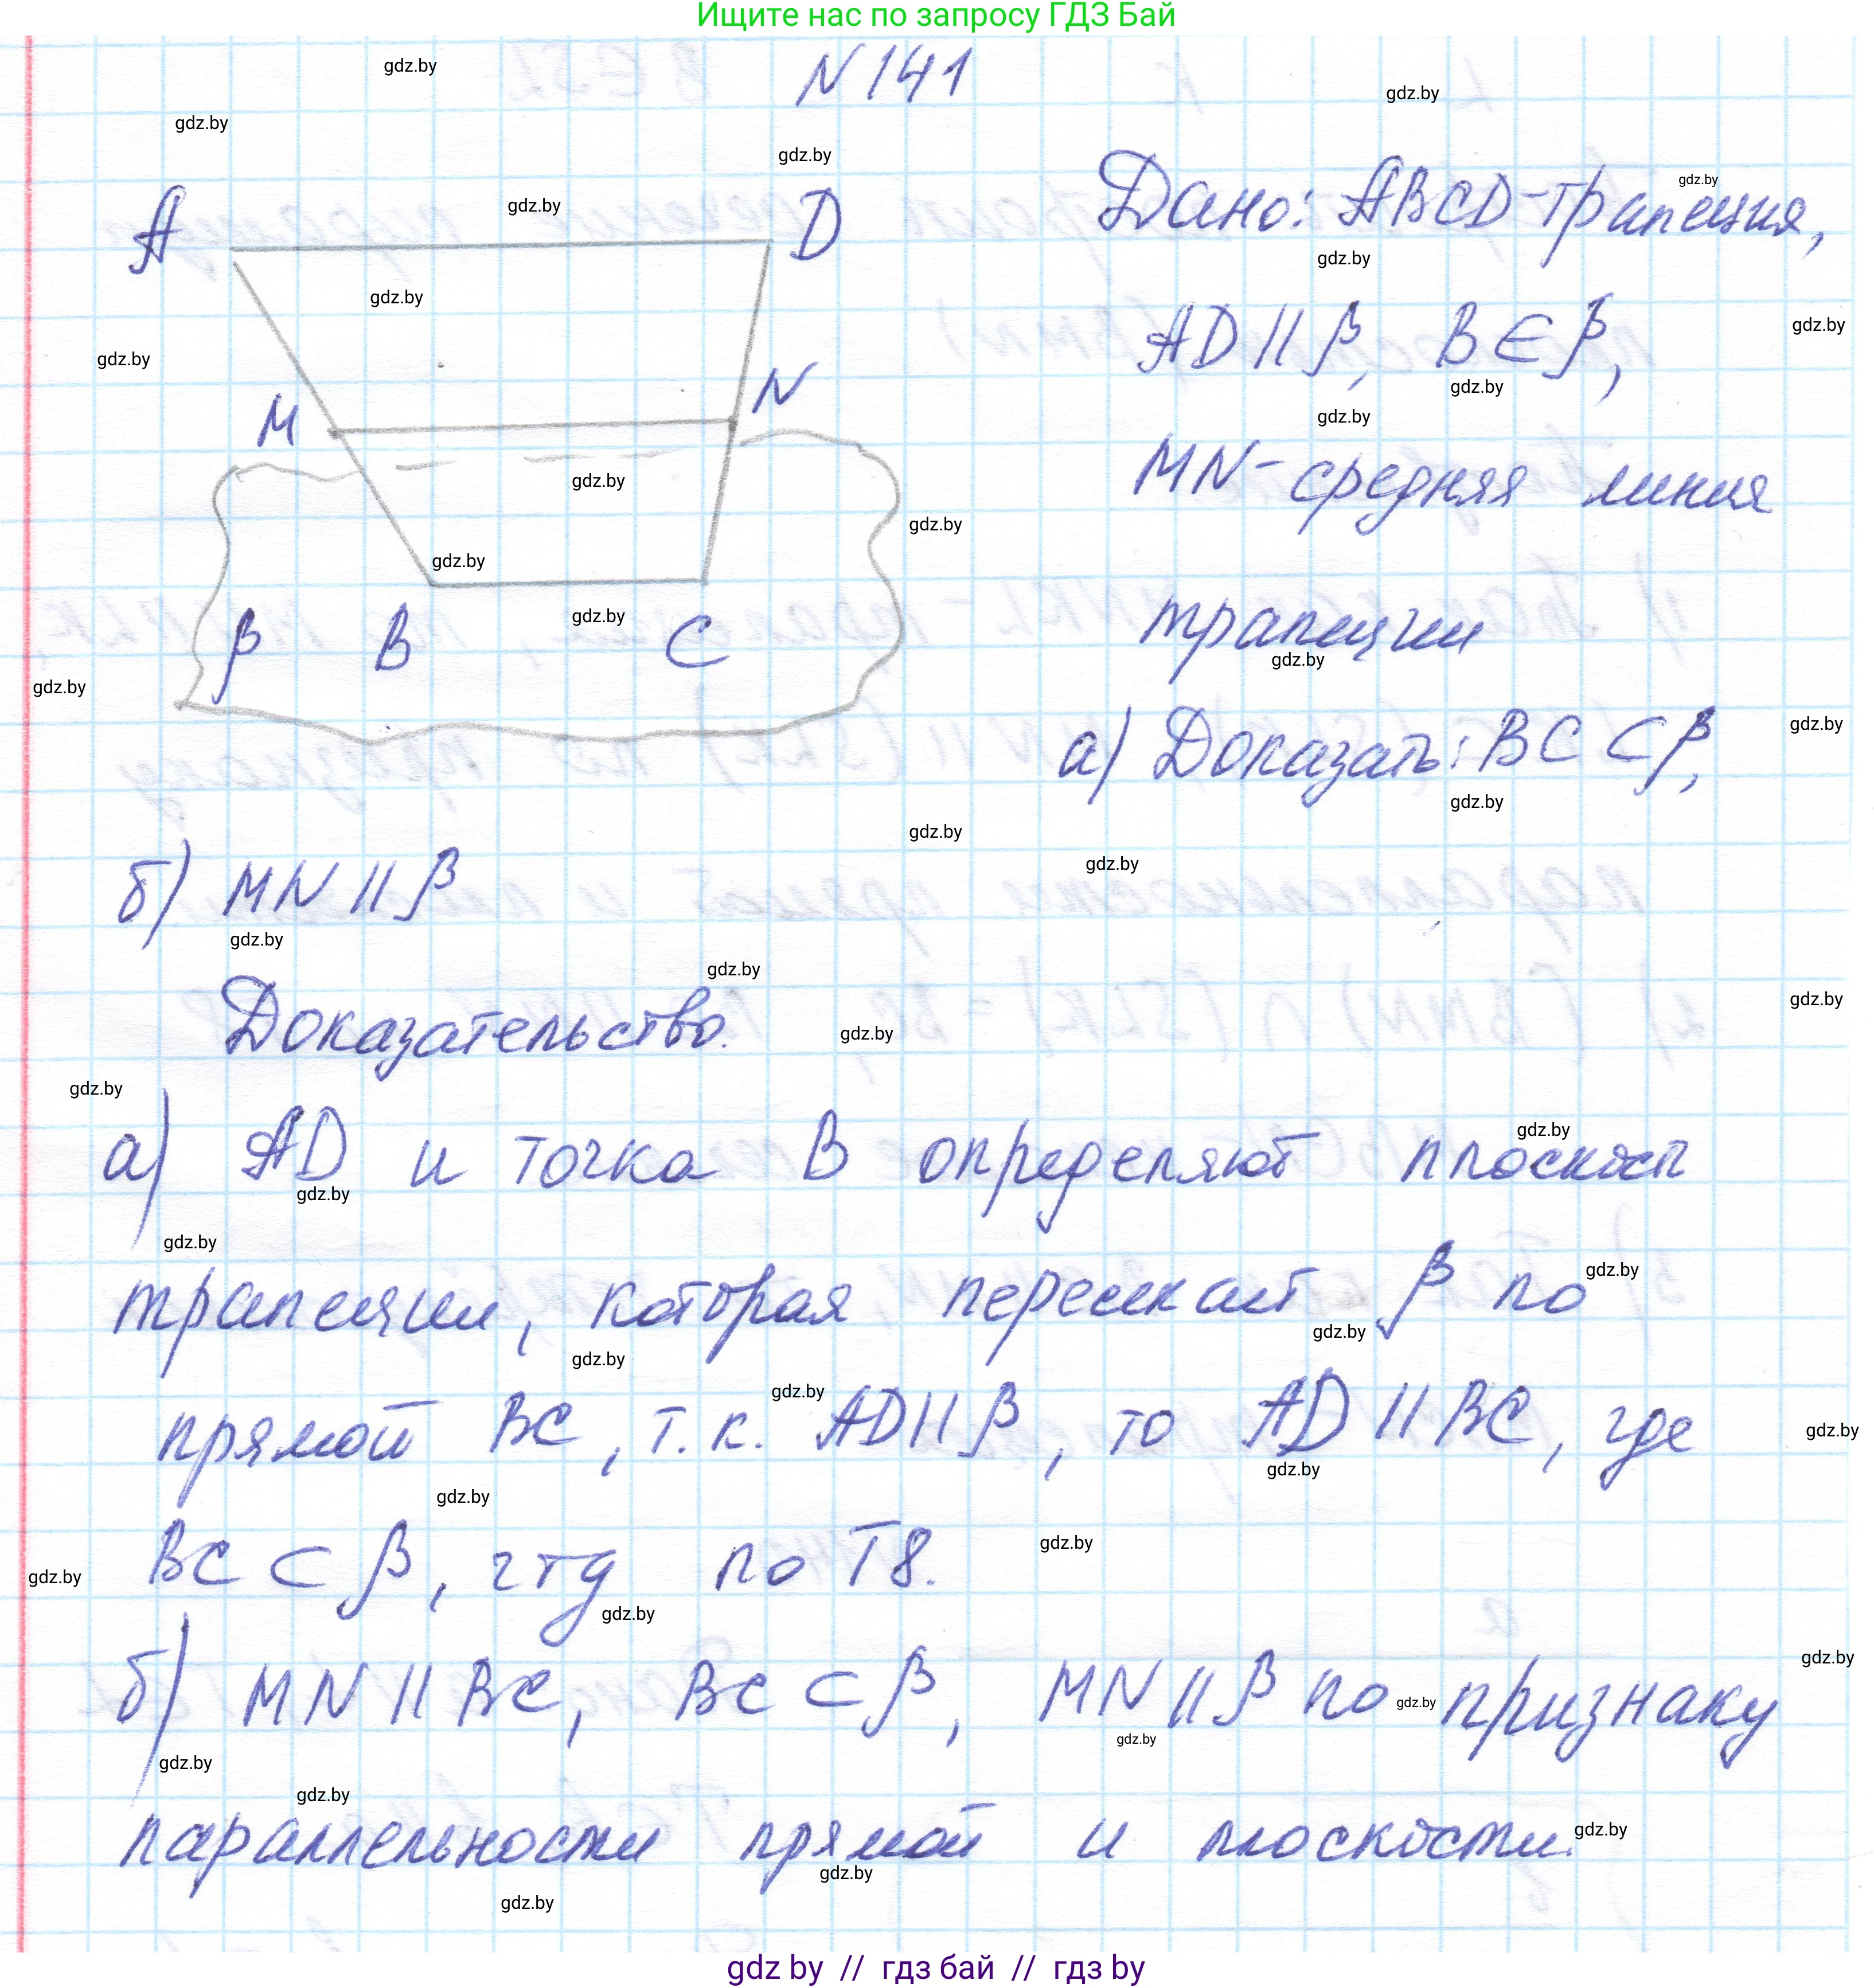 Ищите нас по запросу ГДЗ Бай
N 141
Дано: ABCD-трапеция,
AD || β, B ∈ β,
MN - средняя линия
трапеции
а) Доказать: BC ⊂ β,
A
D
M
N
β
B
C
б) MN || β
Доказательство.
а) AD и точка B определяют плоскость
трапеции, которая пересекает β по
прямой BC, т.к. AD || β, то AD || BC, где
BC ⊂ β, чтд по Т8.
б) MN || BC, BC ⊂ β, MN || β по признаку
параллельности прямой и плоскости.
gdz.by
gdz by // гдз бай // гдз by